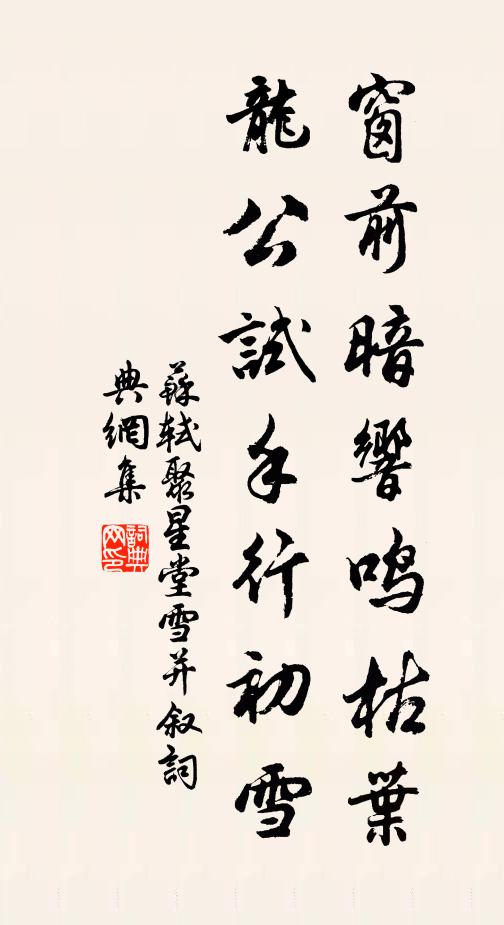 窗前暗響鳴枯葉
龍公試手行初雪
蘇軾聚星堂雪并叙詞
典網集
詞典
网印